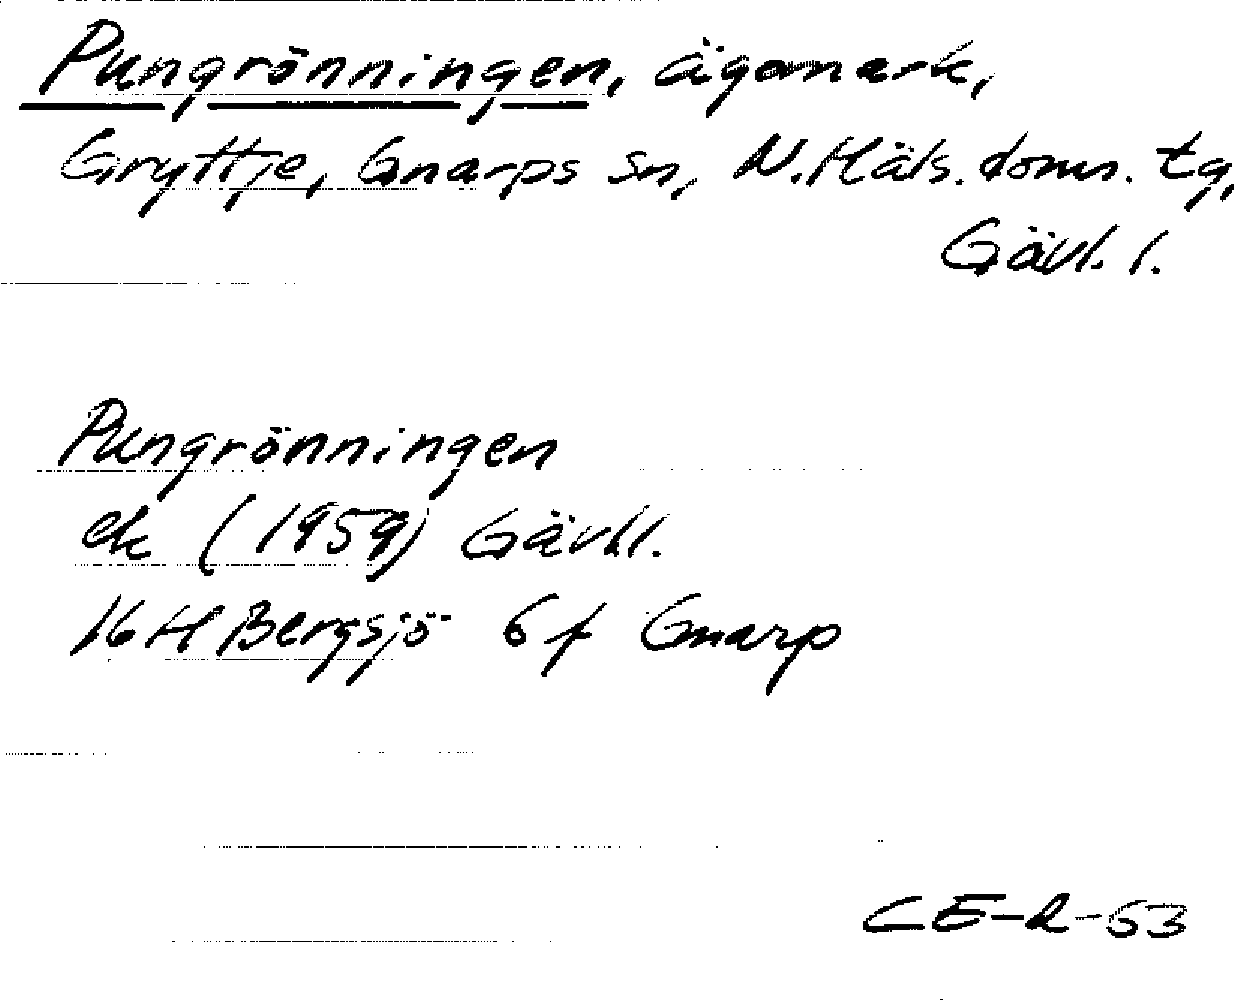 Pungrönningen, ägomark,
Gryttje, Gnarps sn, N. Häls. doms. tg,
Gävl. l.
Pungrönningen
ek (1959) Gävl l.
16 H Bergsjö 6 f Gnarp
CE-R-53